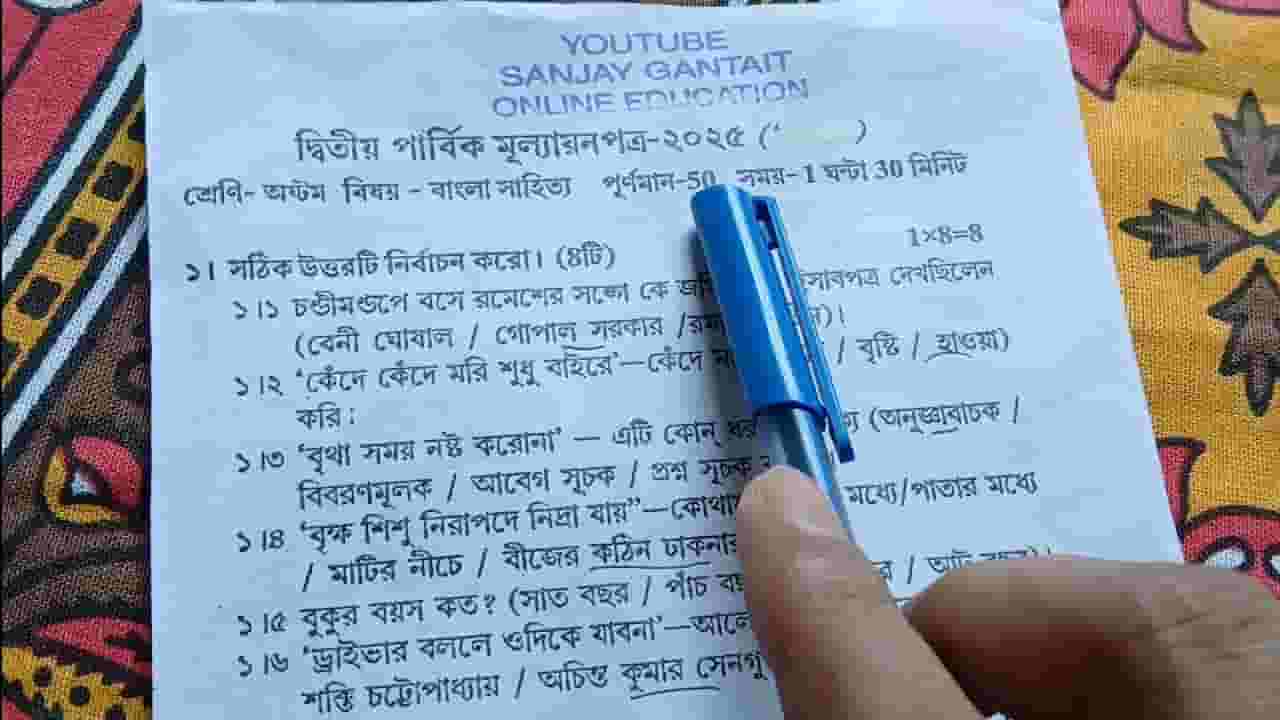 YOUTUBE
SANJAY GANTAIT
ONLINE EDUCATION
দ্বিতীয় পার্বিক মূল্যায়নপত্র-২০২৫ (' )
শ্রেণি- অষ্টম বিষয় - বাংলা সাহিত্য পূর্ণমান-50 সময়-1 ঘন্টা 30 মিনিট
১। সঠিক উত্তরটি নির্বাচন করো। (8টি) 1×8=8
১।১ চণ্ডীমণ্ডপে বসে রমেশের সঙ্গে কে দেখছিলেন
(বেনী ঘোষাল / গোপাল সরকার /
১।২ 'কেঁদে কেঁদে মরি শুধু বাইরে'—কেঁদে / বৃষ্টি / হাওয়া)
করি:
১।৩ 'বৃথা সময় নষ্ট করোনা' — এটি কোন্ (অনুজ্ঞাবাচক /
বিবরণমূলক / আবেগ সূচক / প্রশ্ন সূচক
১।8 'বৃক্ষ শিশু নিরাপদে নিদ্রা যায়"— মধ্যে/পাতার মধ্যে
/ মাটির নীচে / বীজের কঠিন ঢাকনার
১।৫ বুকুর বয়স কত? (সাত বছর / পাঁচ / আট বছর)।
১।৬ 'ড্রাইভার বললে ওদিকে যাবনা'—
শক্তি চট্টোপাধ্যায় / অচিন্ত কুমার